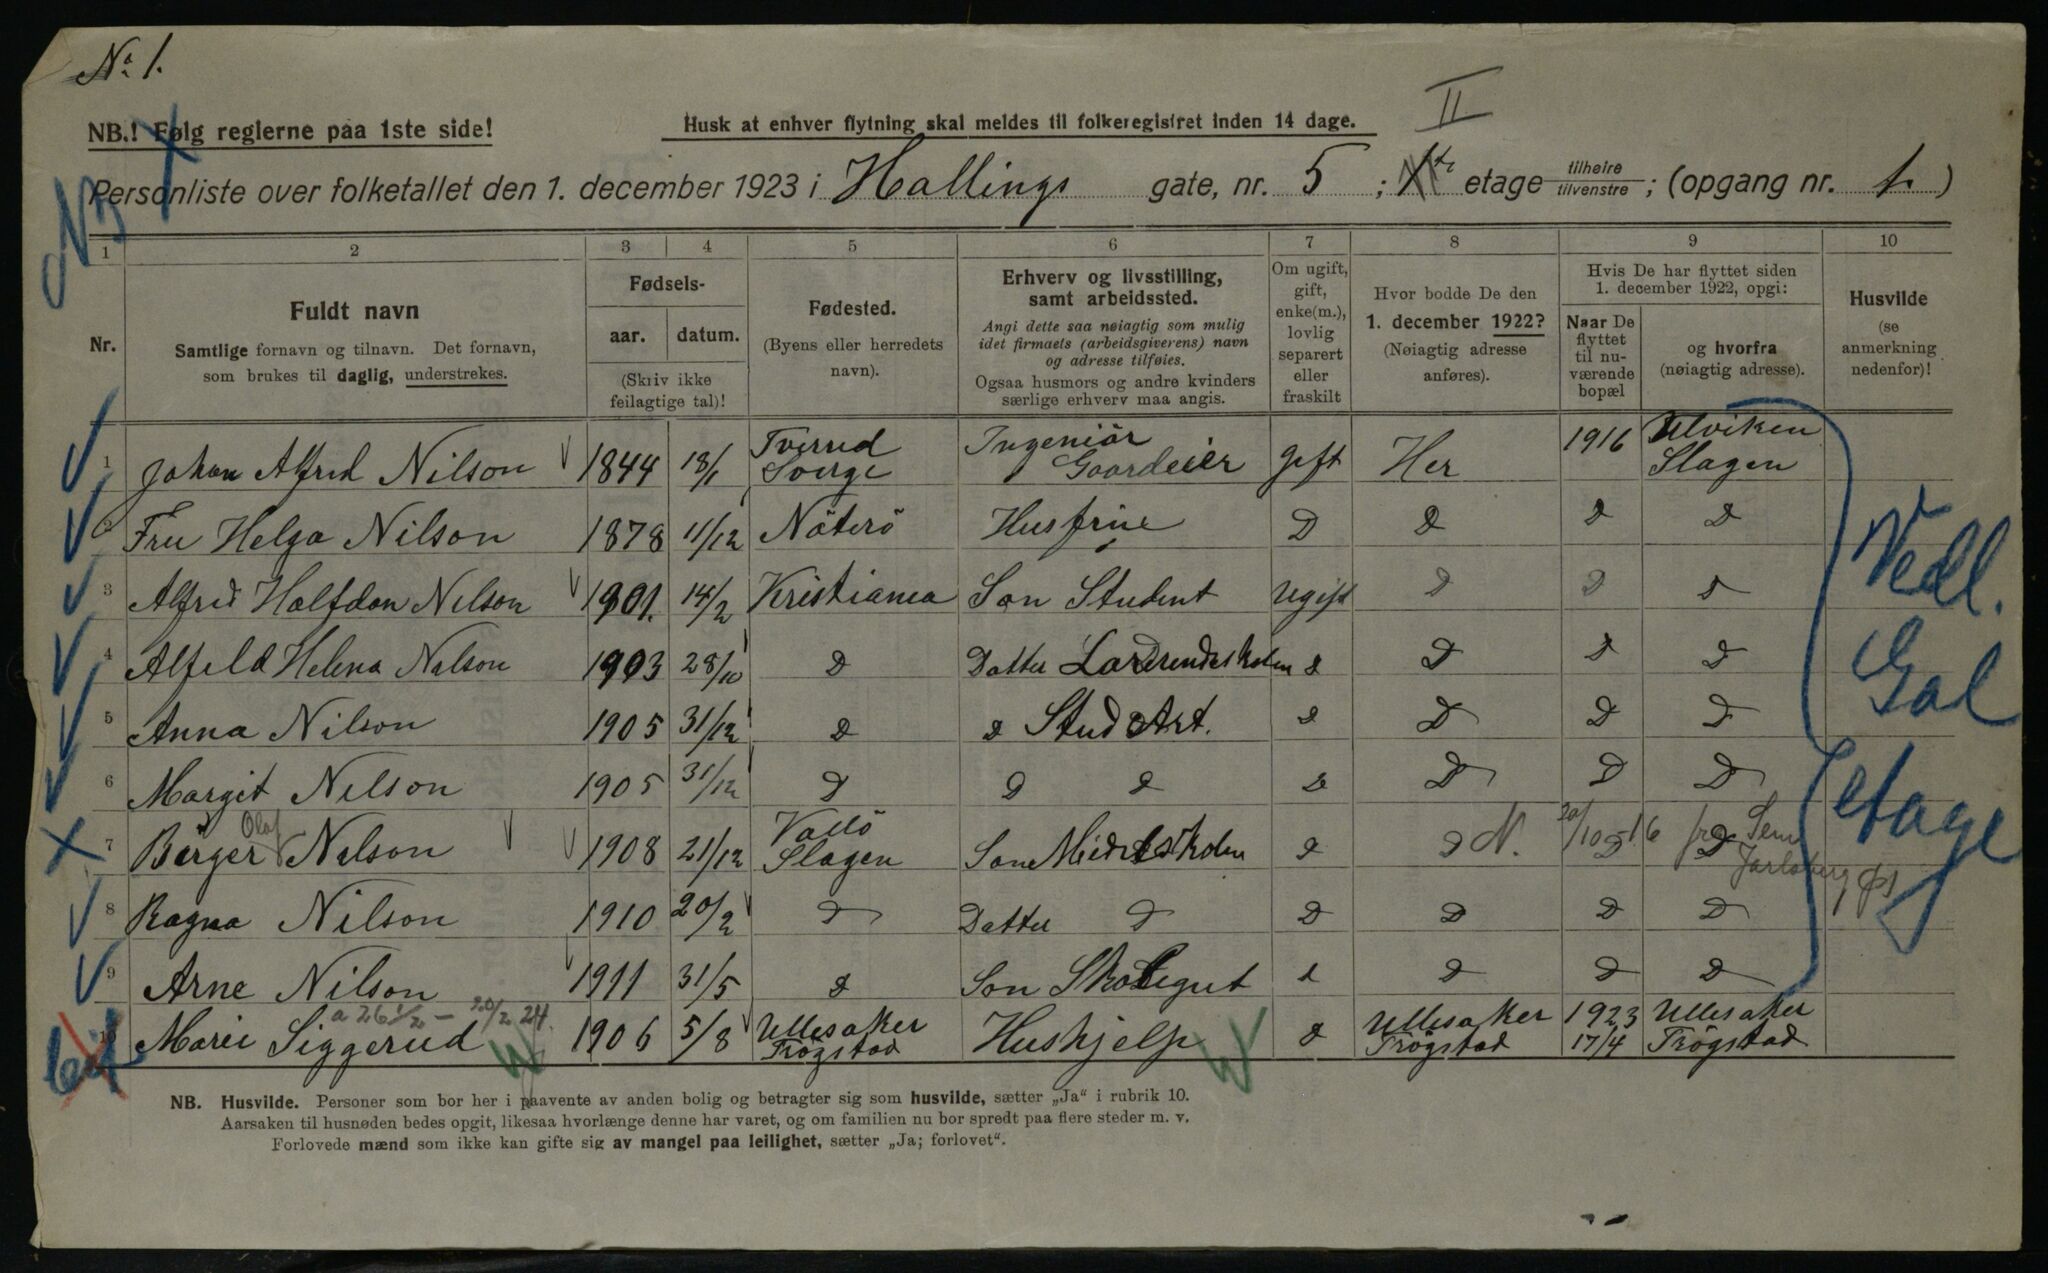 No. 1.
II
NB.! Følg reglerne paa 1ste side!
Husk at enhver flytning skal meldes til folkeregistret inden 14 dage.
Personliste over folketallet den 1. december 1923 i Hallings gate, nr. 5 ; etage tilhøire tilvenstre ; (opgang nr. 1. )
1 2 3 4 5 6 7 8 9 10
Nr.
Fuldt navn
Samtlige fornavn og tilnavn. Det fornavn,
som brukes til daglig, understrekes.
Fødsels-
aar. datum.
(Skriv ikke
feilagtige tal)!
Fødested.
(Byens eller herredets
navn).
Erhverv og livsstilling,
samt arbeidssted.
Angi dette saa nøiagtig som mulig
idet firmaets (arbeidsgiverens) navn
og adresse tilføies.
Ogsaa husmors og andre kvinders
særlige erhverv maa angis.
Om ugift,
gift,
enke(m.),
lovlig
separert
eller
fraskilt
Hvor bodde De den
1. december 1922?
(Nøiagtig adresse
anføres).
Hvis De har flyttet siden
1. december 1922, opgi:
Naar De
flyttet
til nu-
værende
bopæl
og hvorfra
(nøiagtig adresse).
Husvilde
(se
anmerkning
nedenfor)!
1 Johan Alfrid Nilson 1844 18/1 Tverud Sverge Ingeniör Gaardeier Gift Her 1916 Ulviken Slagen
2 Fru Helga Nilson 1878 11/12 Nöterö Husfrue D D D D
3 Alfrid Halfdan Nilson 1901. 14/2 Kristiania Sön Student Ugift D D D
4 Alfeld Helena Nilson 1903 28/10 D Datter D D D D
5 Anna Nilson 1905 31/12 D D Stud Art. D D D D
6 Margit Nilson 1905 31/12 D D D D D D D
7 Birger Olaf Nilson 1908 21/12 Vallö Slagen Sön Middelskolen D D N. D 20/10 16 D fra Sem Jarlsberg
8 Ragna Nilson 1910 20/2 D Datter D D D D D
9 Arne Nilson 1911 31/5 D Sön Skolegut D D D D
10 Marie Siggerud 1906 5/8 Ullesaker Trögstad Hushjelp D Ullesaker Trögstad 1923 17/4 Ullesaker Trögstad
a 26 1/2 - 20/2 24.
Vedl.
Gal
etage
NB. Husvilde. Personer som bor her i paavente av anden bolig og betragter sig som husvilde, sætter „Ja“ i rubrik 10.
Aarsaken til husnøden bedes opgit, likesaa hvorlænge denne har varet, og om familien nu bor spredt paa flere steder m. v.
Forlovede mænd som ikke kan gifte sig av mangel paa leilighet, sætter „Ja; forlovet“.